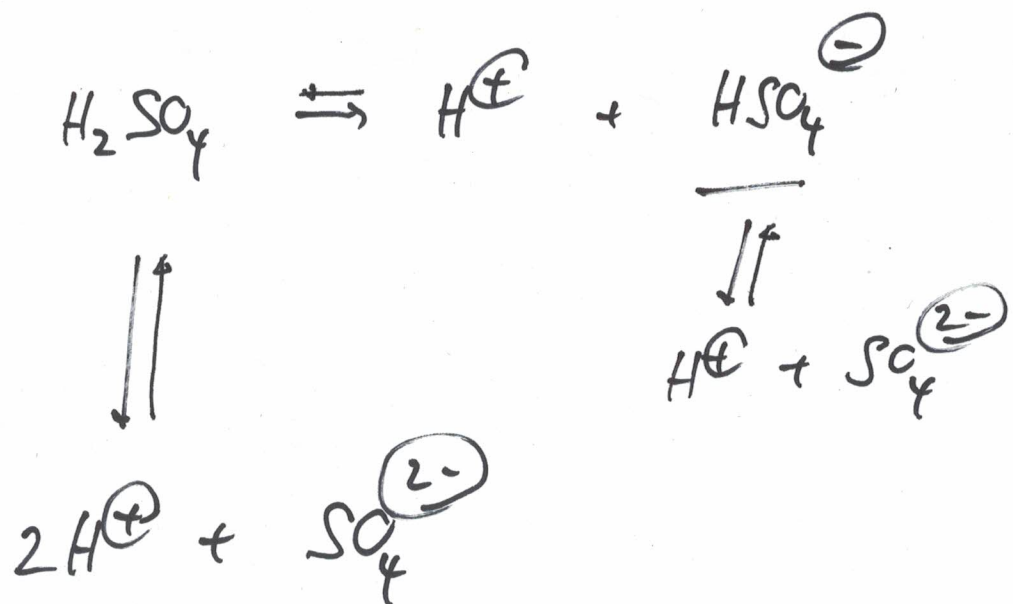 H₂SO₄ ⇌ H⊕ + HSO₄⊖
⇌
H⊕ + SO₄²⁻
⇌
2H⊕ + SO₄²⁻